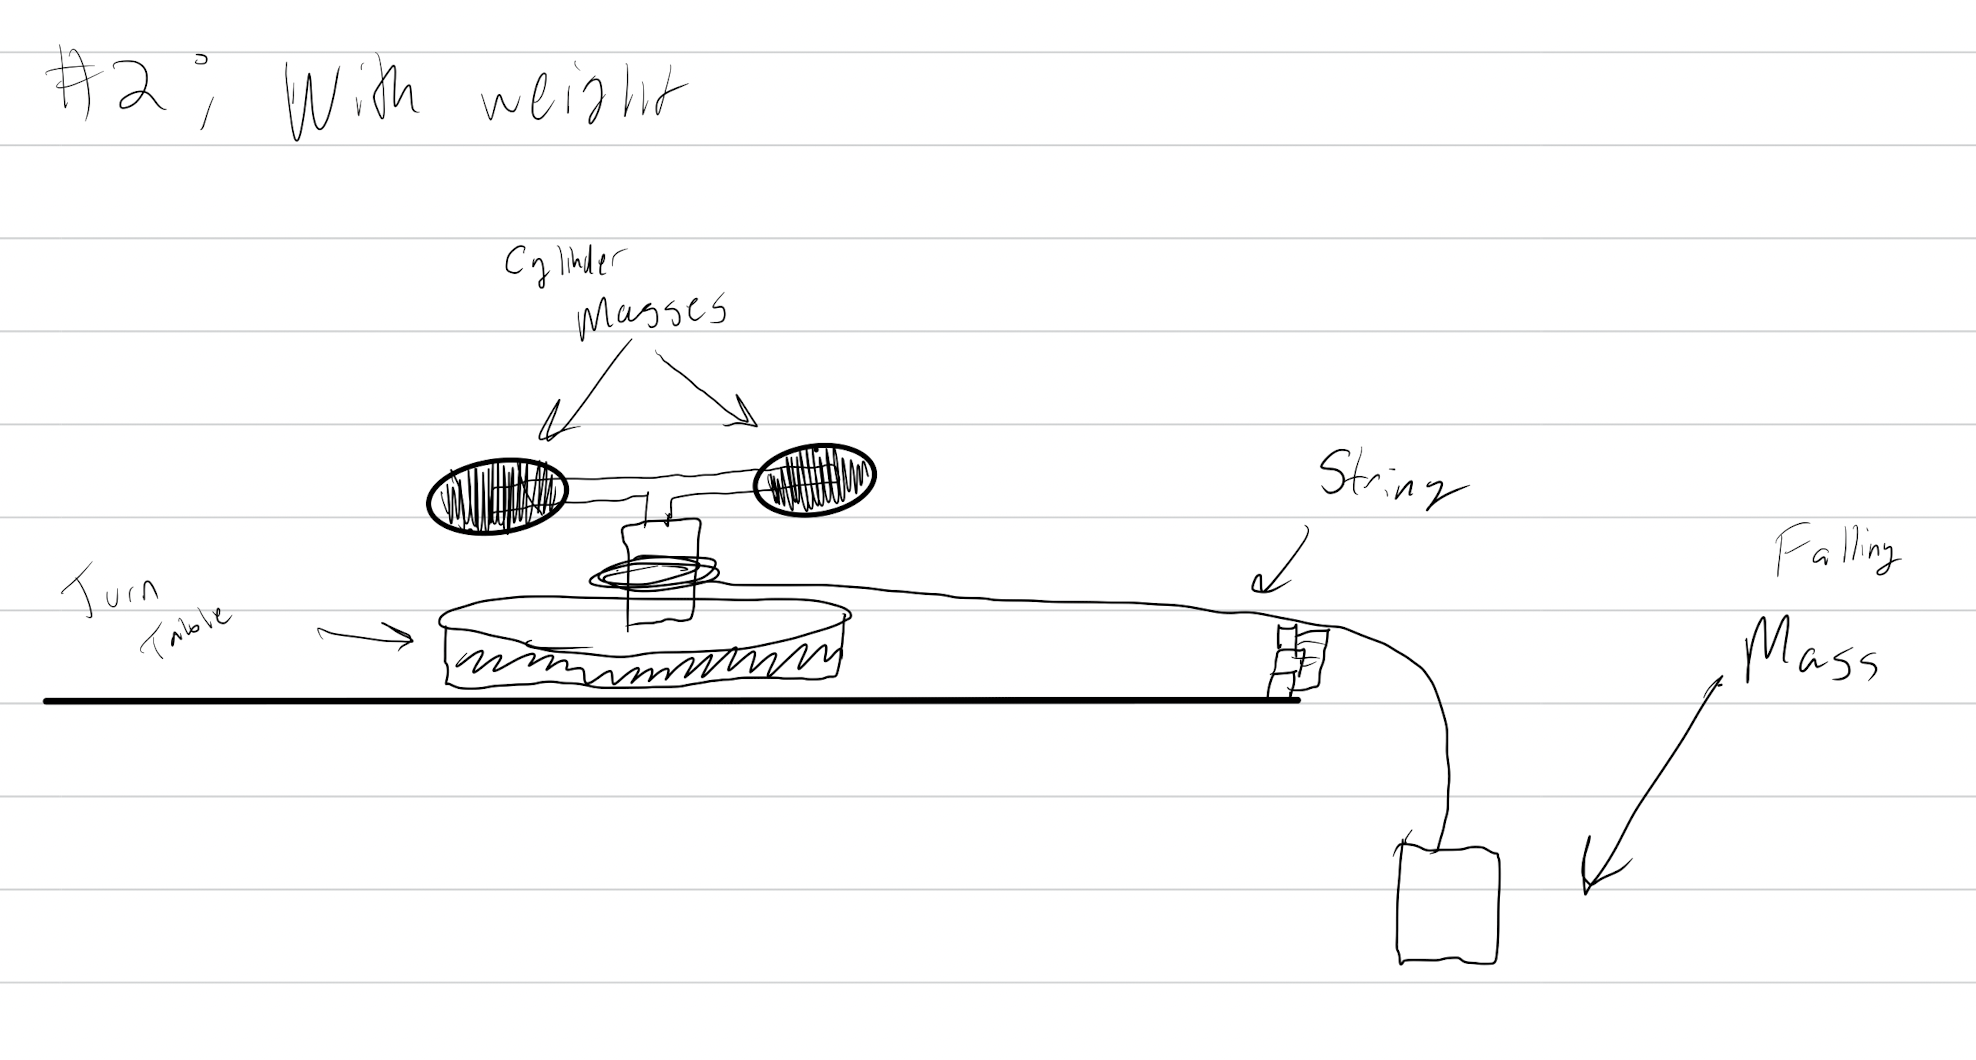 #2: With weight
Cylinder
Masses
String
Falling
Mass
Turn
Table